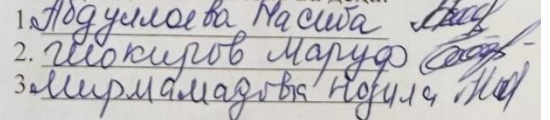 1. Абдуллоева Насиба
2. Шокиров Маруф
3. Мирмамадова Нозила